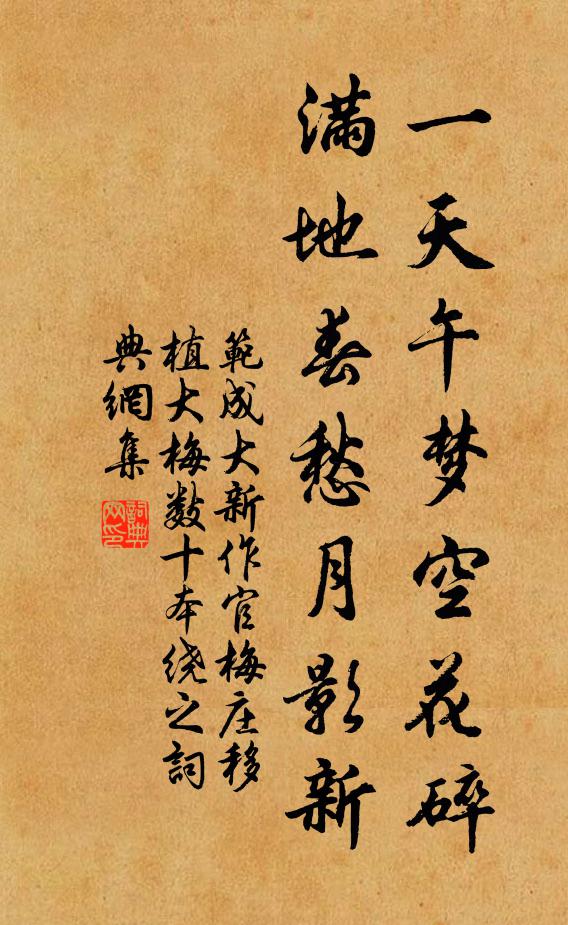 一天午梦空花碎
滿地春愁月影新
範成大新作官梅庄移
植大梅数十本绕之詞
典網集
詞典网印